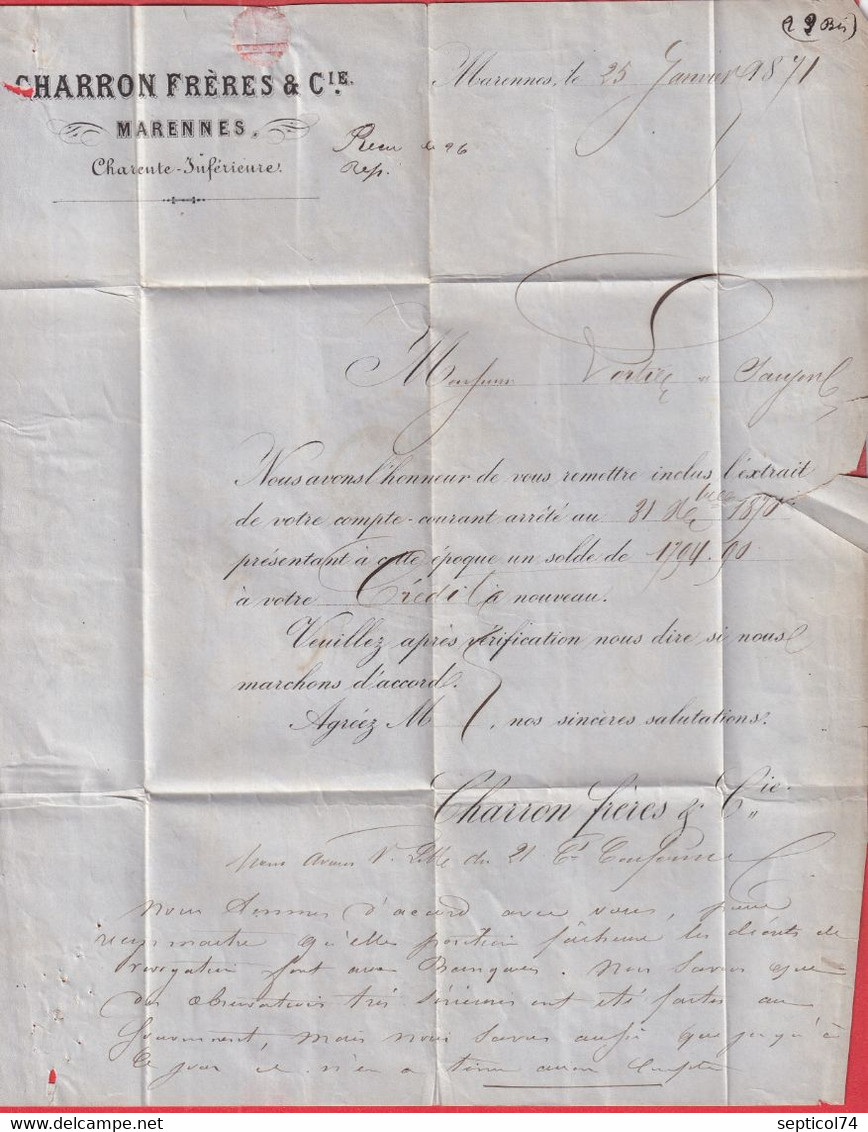 29 Bis
CHARRON FRÈRES & CIE.
MARENNES.
Charente-Inférieure.
Marennes, le 25 Janvier 1871
Recu le 26
Rep.
Monsieur à Saujon
Nous avons l'honneur de vous remettre inclus l'extrait
de votre compte-courant arrêté au 31 Xbre 1870
présentant à cette époque un solde de 1794.90
à votre Crédit à nouveau.
Veuillez après vérification nous dire si nous
marchons d'accord.
Agréez M , nos sincères salutations.
Charron frères & Cie.
Nous avons V. Lttre du 21 Ct
Nous sommes d'accord avec vous, pour
reconnaitre qu'elle position fâcheuse les décrets de
font aux Banques. Nous savons que
des observations très sérieuses ont été faites au
Gouvernement, mais nous savons aussi que jusqu'à
ce jour il n'en a tenu aucun compte
septicol74